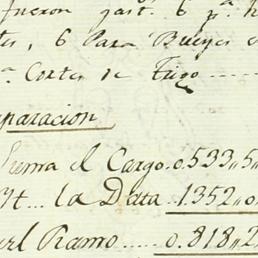 fueron gast. 6 p.
tes, 6 Para Bueyes
Cortes de Trigo
paracion
Suma el Cargo. 0.533,,5
Yt... la Data. 1352,,0
el Ramo..... 0.818,,2